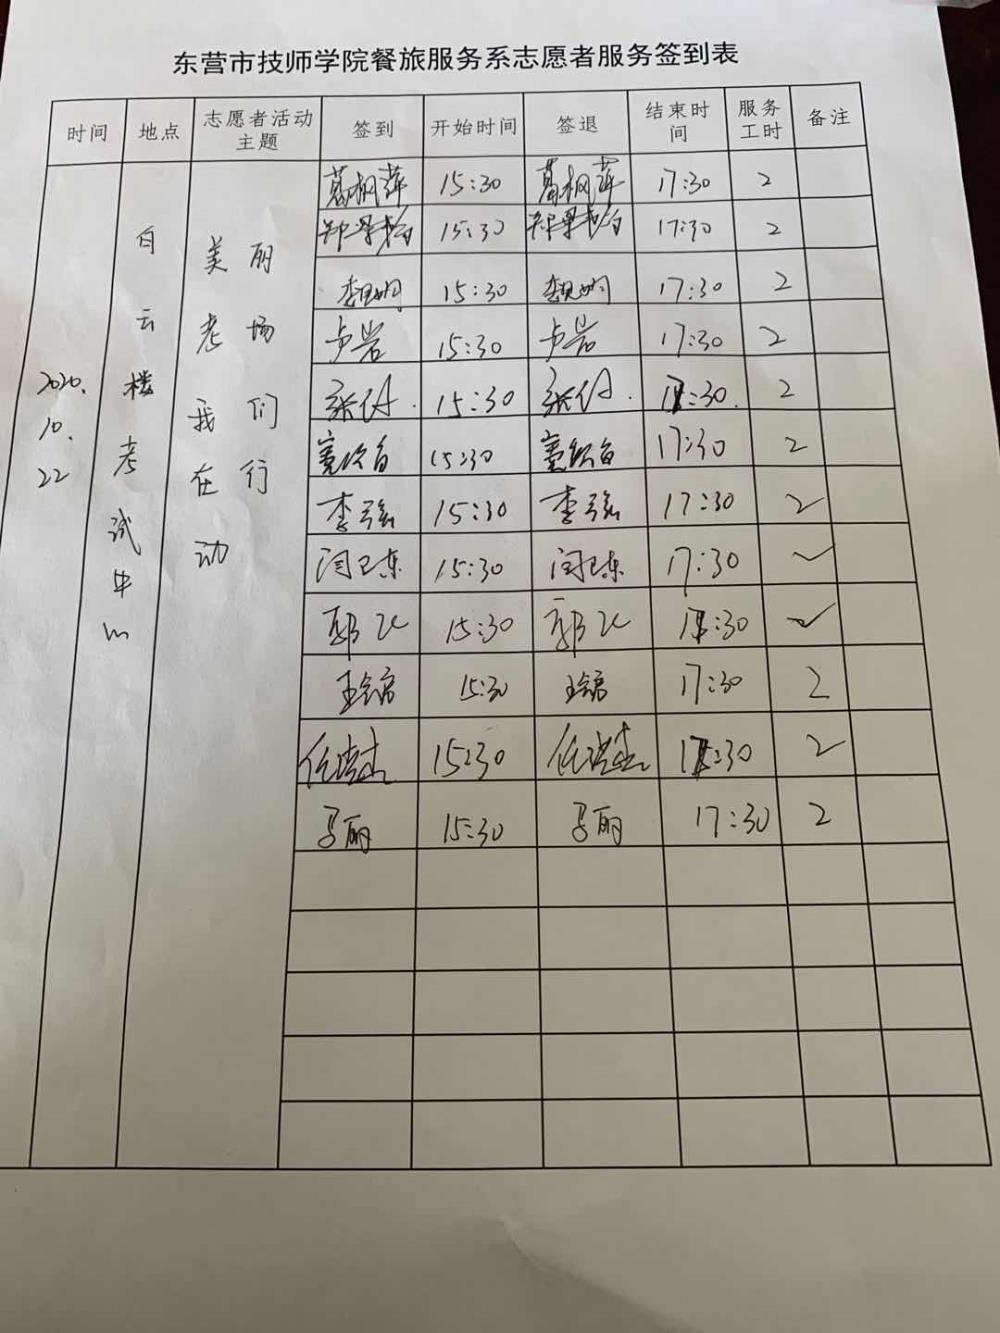 东营市技师学院餐旅服务系志愿者服务签到表
时间 地点 志愿者活动主题 签到 开始时间 签退 结束时间 服务工时 备注
2020.10.22 白云楼考试中心 美丽考场我们在行动
葛桐萍 15:30 葛桐萍 17:30 2
15:30 17:30 2
15:30 17:30 2
卢岩 15:30 卢岩 17:30 2
15:30 17:30 2
15:30 17:30 2
李强 15:30 李强 17:30 2
闫卫东 15:30 闫卫东 17:30
郭飞 15:30 郭飞 17:30
15:30 17:30 2
任洪杰 15:30 任洪杰 17:30 2
马丽 15:30 马丽 17:30 2